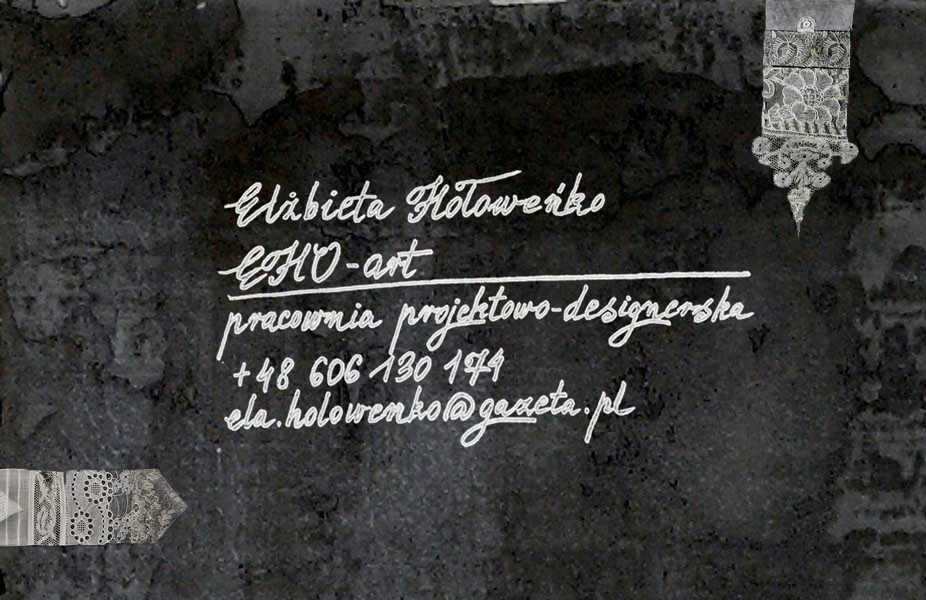 Elżbieta Hołoweńko
EHO-art
pracownia projektowo-designerska
+48 606 130 174
ela.holowenko@gazeta.pl